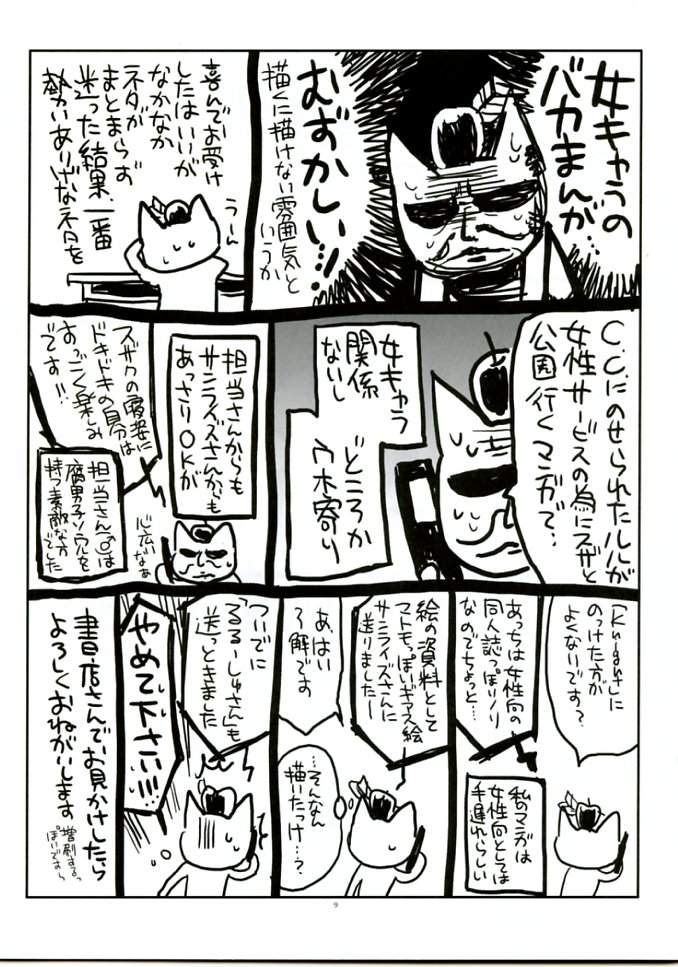 女キャラの
バカまんが
むずかしい…!!
描くに描けない雰囲気と
いうか
喜んでお受け
したはいいが
なかなか
ネタが
まとまらず
迷った結果、一番
勢いありげなネタを
うーん
C.C.にのせられたルルが
女性サービスの為にスザと
公園行くマンガで…
女キャラ
関係
ないし
どころか
ウホ寄り
担当さんからも
サンライズさんからも
あっさりOKが
スザクの
ドキドキの自分は
すっごく楽しみ
です!!
担当さん(♂)は
腐男子ソウルを
持つ素敵なかた
でした
心広いなぁ
「Knight」に
のっけた方が
よくないです?
あっちは女性向の
同人誌っぽいノリ
なのでちょっと…
私のマンガは
女性向としては
手遅れらしい
絵の資料として
マトモっぽいギアス絵
サンライズさんに
送りましたー
あ、はい
了解です
…そんなん
描いたっけ…?
ついでに
「るるーしゅさん」も
送っときました
やめて下さい!!!!
書店さんでお見かけしたら
よろしくおねがいします
増刷するっ
ぽいですから
9